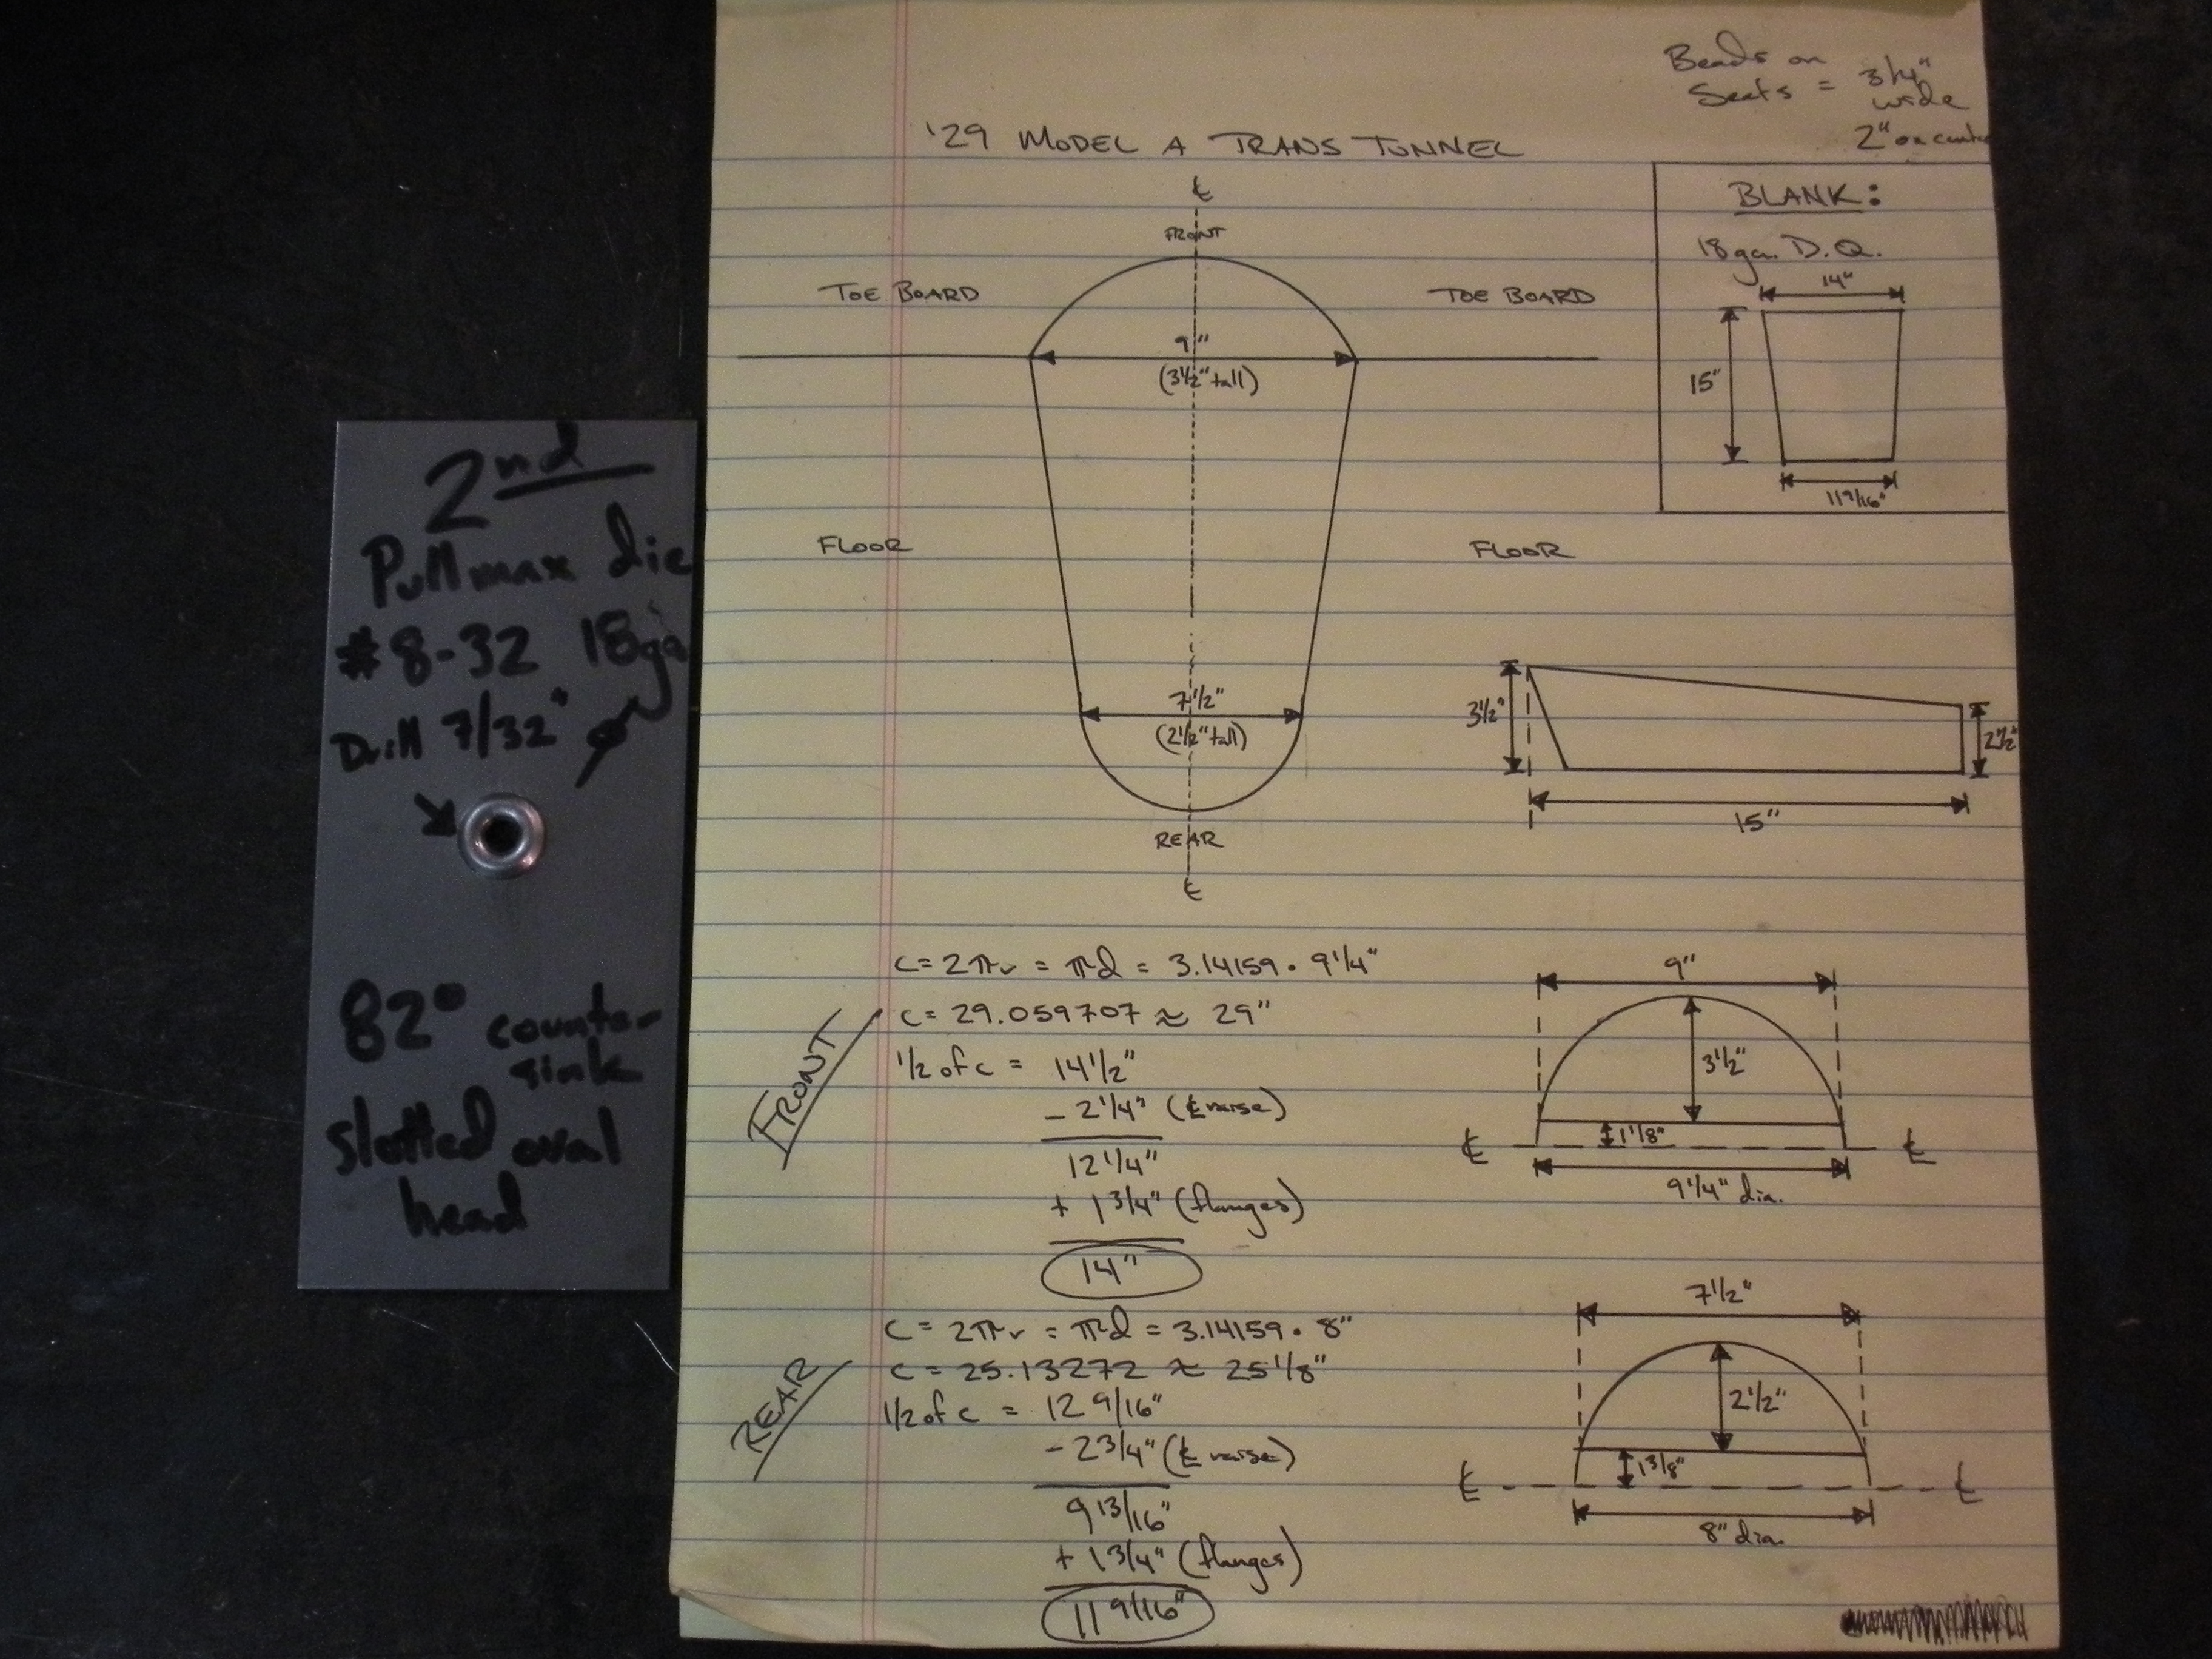 2nd
Pullmax die
#8-32 18ga
Drill 7/32" ø
82° counter-
sink
slotted oval
head
Beads on
Seats = 3/4"
wide
2" on cente
'29 MODEL A TRANS TUNNEL
℄
FRONT
TOE BOARD
TOE BOARD
9"
(3 1/2" tall)
FLOOR
FLOOR
7 1/2"
(2 1/2" tall)
REAR
℄
BLANK:
18ga. D.Q.
14"
15"
11 9/16"
3 1/2"
2 1/2"
15"
FRONT
C = 2πr = πd = 3.14159 • 9 1/4"
C = 29.059707 ≈ 29"
1/2 of c = 14 1/2"
- 2 1/4" (℄ raise)
12 1/4"
+ 1 3/4" (flanges)
14"
9"
3 1/2"
1 1/8"
℄ ℄
9 1/4" dia.
REAR
C = 2πr = πd = 3.14159 • 8"
C = 25.13272 ≈ 25 1/8"
1/2 of c = 12 9/16"
- 2 3/4" (℄ raise)
9 13/16"
+ 1 3/4" (flanges)
11 9/16"
7 1/2"
2 1/2"
1 3/8"
℄ ℄
8" dia.